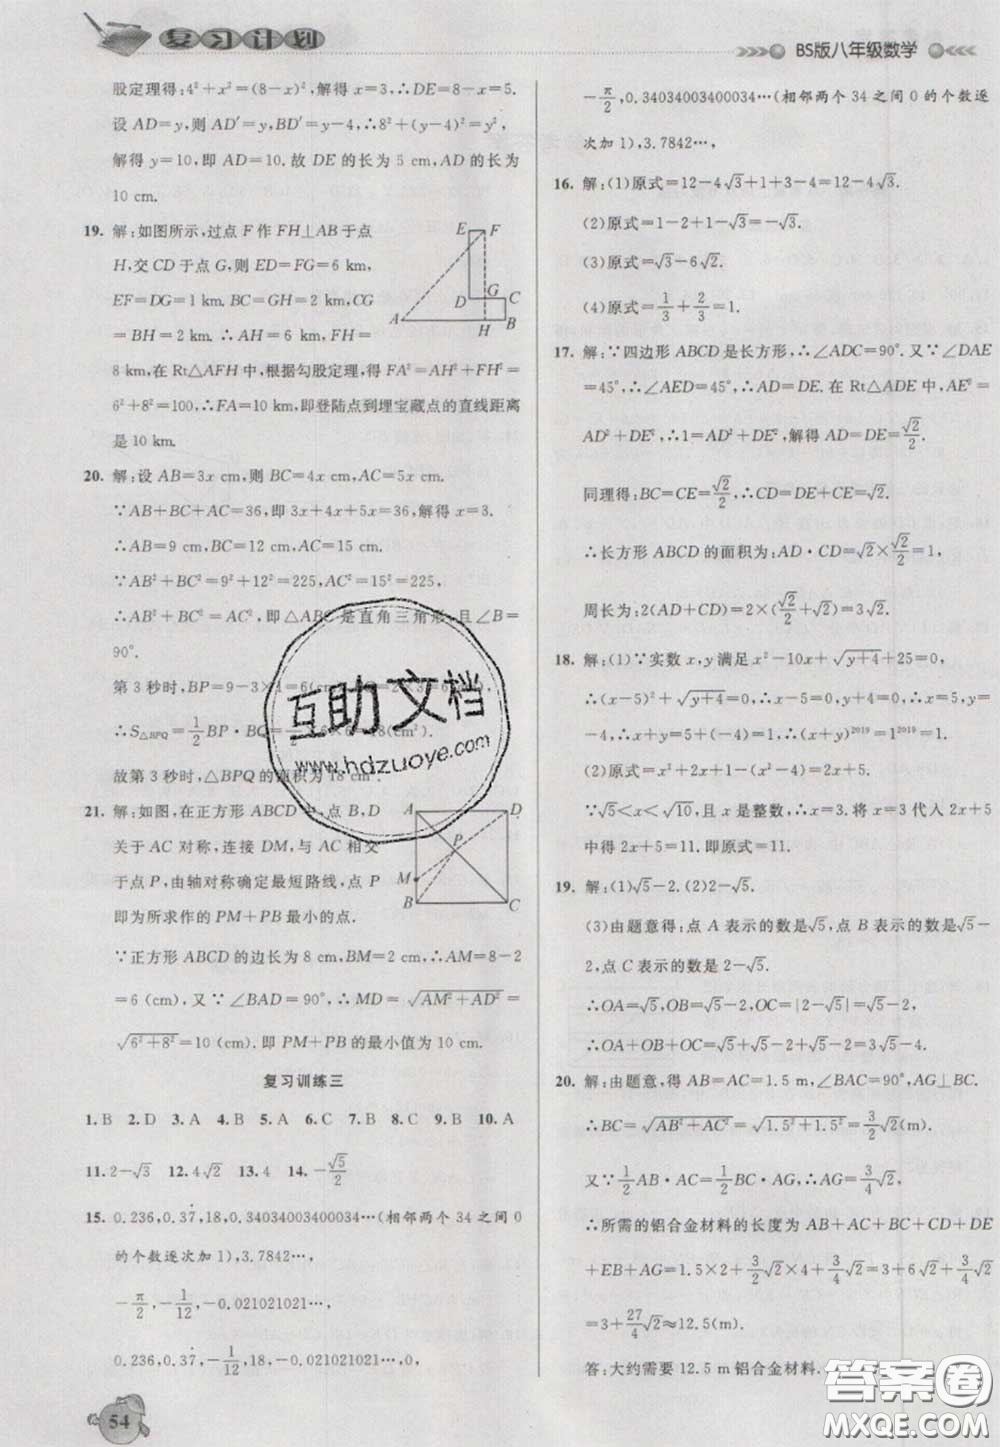 复习计划
BS版八年级数学
股定理得:4²+x²=(8-x)²,解得x=3,∴DE=8-x=5.
设AD=y,则AD′=y,BD′=y-4,∴8²+(y-4)²=y²,
解得y=10,即AD=10.故DE的长为5 cm,AD的长为
10 cm.
19. 解:如图所示,过点F作FH⊥AB于点
H,交CD于点G,则ED=FG=6 km,
EF=DG=1 km.BC=GH=2 km,CG
=BH=2 km.∴AH=6 km,FH=
8 km,在Rt△AFH中,根据勾股定理,得FA²=AH²+FH²=
6²+8²=100,∴FA=10 km,即登陆点到埋宝藏点的直线距离
是10 km.
E F
D G C
A H B
20. 解:设AB=3x cm,则BC=4x cm,AC=5x cm.
∵AB+BC+AC=36,即3x+4x+5x=36,解得x=3.
∴AB=9 cm,BC=12 cm,AC=15 cm.
∵AB²+BC²=9²+12²=225,AC²=15²=225,
∴AB²+BC²=AC²,即△ABC是直角三角形,且∠B=
90°.
第3秒时,BP=9-3×1=6(cm),
∴S△BPQ=1/2BP·BQ=
故第3秒时,△BPQ的面积为18 cm².
21. 解:如图,在正方形ABCD中,点B,D
关于AC对称,连接DM,与AC相交
于点P,由轴对称确定最短路线,可
即为所求作的PM+PB最小的点.
∵正方形ABCD的边长为8 cm,BM=2 cm,∴AM=8-2
=6(cm),又∵∠BAD=90°,∴MD=√(AM²+AD²)=
√(6²+8²)=10(cm).即PM+PB的最小值为10 cm.
A D
P
M
B C
复习训练三
1.B 2.D 3.A 4.B 5.A 6.C 7.B 8.B 9.B 10.A
11.2-√3 12.4√2 13.4 14.-√5/2
15. 0.236,0.3̇7̇,18,0.34034003400034…(相邻两个34之间0
的个数逐次加1),3.7842…,
-π/2,-1/12,-0.021021021…,
0.236,0.3̇7̇,-1/12,18,-0.021021021…,0,
54
-π/2,0.34034003400034…(相邻两个34之间0的个数逐
次加1),3.7842…,
16. 解:(1)原式=12-4√3+1+3-4=12-4√3.
(2)原式=1-2+1-√3=-√3.
(3)原式=√3-6√2.
(4)原式=1/3+2/3=1.
17. 解:∵四边形ABCD是长方形,∴∠ADC=90°.又∵∠DAE
=45°,∴∠AED=45°,∴AD=DE.在Rt△ADE中,AE²=
AD²+DE²,∴1=AD²+DE²,解得AD=DE=√2/2.
同理得:BC=CE=√2/2,∴CD=DE+CE=√2.
∴长方形ABCD的面积为:AD·CD=√2×√2/2=1,
周长为:2(AD+CD)=2×(√2/2+√2)=3√2.
18. 解:(1)∵实数x,y满足x²-10x+√(y+4)+25=0,
∴(x-5)²+√(y+4)=0,∴x-5=0,y+4=0,∴x=5,y=
-4,∴x+y=5-4=1,∴(x+y)²⁰¹⁹=1²⁰¹⁹=1.
(2)原式=x²+2x+1-(x²-4)=2x+5.
∵√5<x<√10,且x是整数,∴x=3.将x=3代入2x+5
中得2x+5=11.即原式=11.
19. 解:(1)√5-2.(2)2-√5.
(3)由题意得:点A表示的数是√5,点B表示的数是√5-
2,点C表示的数是2-√5.
∴OA=√5,OB=√5-2,OC=|2-√5|=√5-2,
∴OA+OB+OC=√5+√5-2+√5-2=3√5-4.
20. 解:由题意,得AB=AC=1.5 m,∠BAC=90°,AG⊥BC.
∴BC=√(AB²+AC²)=√(1.5²+1.5²)=3/2√2(m).
又∵1/2AB·AC=1/2BC·AG,∴AG=3/4√2(m).
∴所需的铝合金材料的长度为AB+AC+BC+CD+DE
+EB+AG=1.5×2+3/2√2×4+3/4√2=3+6√2+3/4√2
=3+27/4√2≈12.5(m).
答:大约需要12.5 m铝合金材料.
互助文档
www.hdzuoye.com
答案圈
MXQE.COM